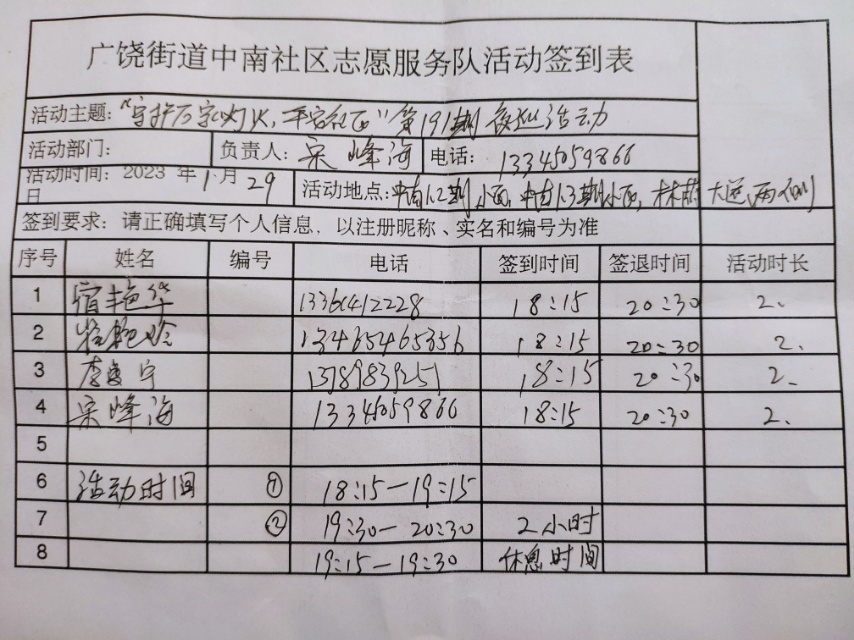 广饶街道中南社区志愿服务队活动签到表
活动主题: “守护万家灯火,平安社区”第191期夜巡活动
活动部门: 负责人: 宋峰海 电话: 13345059866
活动时间: 2023 年 1 月 29 日 活动地点: 中南1.2期小区,中南1.3期小区, 大道两侧
签到要求: 请正确填写个人信息, 以注册昵称、实名和编号为准
序号 姓名 编号 电话 签到时间 签退时间 活动时长
1 宿艳华 18:15 20:30 2.
2 13465465356 18:15 20:30 2.
3 李 宁 13789839251 18:15 20:30 2.
4 宋峰海 13345059866 18:15 20:30 2.
5
6 活动时间 ① 18:15—19:15
7 ② 19:30—20:30 2小时
8 19:15—19:30 休息时间